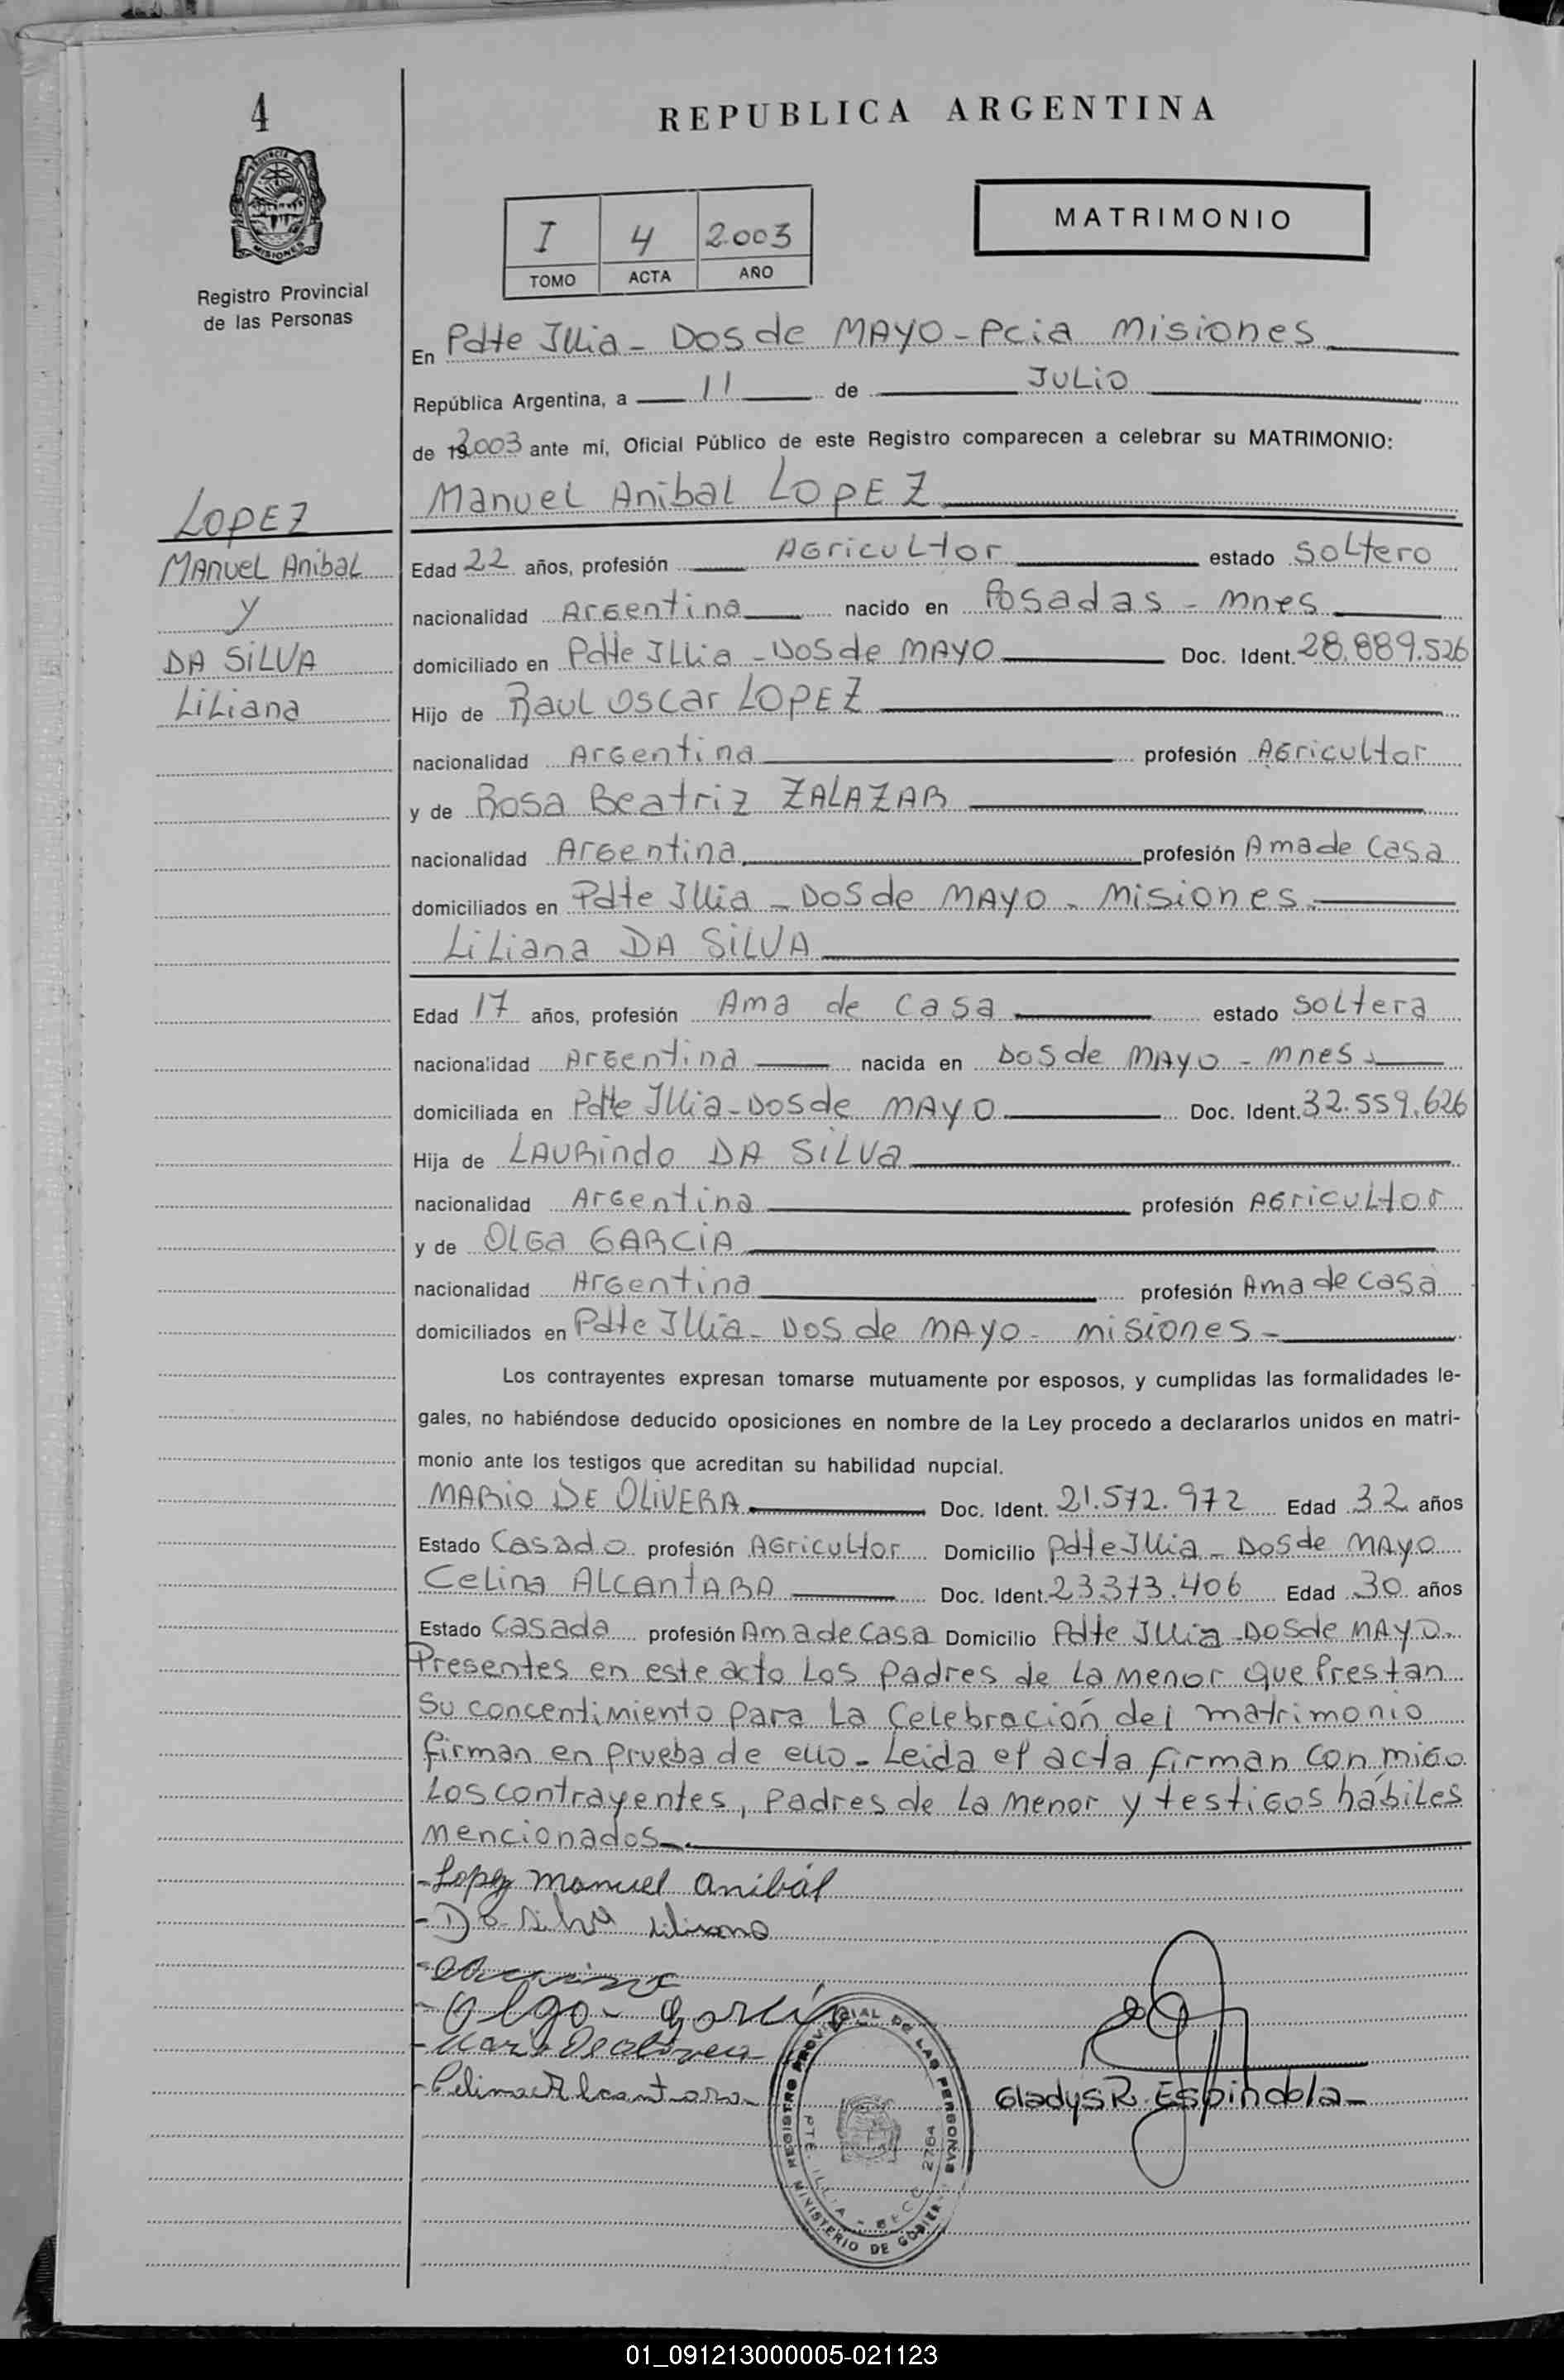 4
REPUBLICA ARGENTINA
PROVINCIA DE
MISIONES
Registro Provincial
de las Personas
I 4 2.003
TOMO ACTA AÑO
MATRIMONIO
En Pdte Illia - Dos de MAYO - Pcia Misiones
República Argentina, a 11 de JULIO
de 2003 ante mí, Oficial Público de este Registro comparecen a celebrar su MATRIMONIO:
Manuel Anibal LOPEZ
LOPEZ
Manuel Anibal
y
DA SILVA
Liliana
Edad 22 años, profesión Agricultor estado Soltero
nacionalidad Argentina nacido en Posadas - Mnes
domiciliado en Pdte Illia - Dos de MAYO Doc. Ident. 28.889.526
Hijo de Raul Oscar LOPEZ
nacionalidad Argentina profesión Agricultor
y de Rosa Beatriz ZALAZAR
nacionalidad Argentina profesión Ama de Casa
domiciliados en Pdte Illia - Dos de MAYO - Misiones.
Liliana DA SILVA
Edad 17 años, profesión Ama de Casa estado Soltera
nacionalidad Argentina nacida en Dos de MAYO - Mnes.
domiciliada en Pdte Illia - Dos de MAYO Doc. Ident. 32.559.626
Hija de LAURINDO DA SILVA
nacionalidad Argentina profesión Agricultor
y de OLGA GARCIA
nacionalidad Argentina profesión Ama de casa
domiciliados en Pdte Illia - Dos de MAYO - Misiones -
Los contrayentes expresan tomarse mutuamente por esposos, y cumplidas las formalidades le-
gales, no habiéndose deducido oposiciones en nombre de la Ley procedo a declararlos unidos en matri-
monio ante los testigos que acreditan su habilidad nupcial.
MARIO DE OLIVERA Doc. Ident. 21.572.972 Edad 32 años
Estado Casado profesión Agricultor Domicilio Pdte Illia - Dos de MAYO
Celina ALCANTARA Doc. Ident. 23.373.406 Edad 30 años
Estado Casada profesión Ama de Casa Domicilio Pdte Illia - Dos de MAYO.
Presentes en este acto los padres de la menor que Prestan
su concentimiento para la Celebración del matrimonio
firman en prueba de ello - Leida el acta firman con migo
los contrayentes, padres de la menor y testigos hábiles
mencionados -
- Lopez Manuel Anibál
- Da Silva Liliana
- Olga Garcia
- Mario De Olivera
- Celina Alcantara
REGISTRO PROVINCIAL DE LAS PERSONAS
PTE. ILLIA - SECC. 2764
MINISTERIO DE GOBIER
Gladys R. Espindola -
01_091213000005-021123